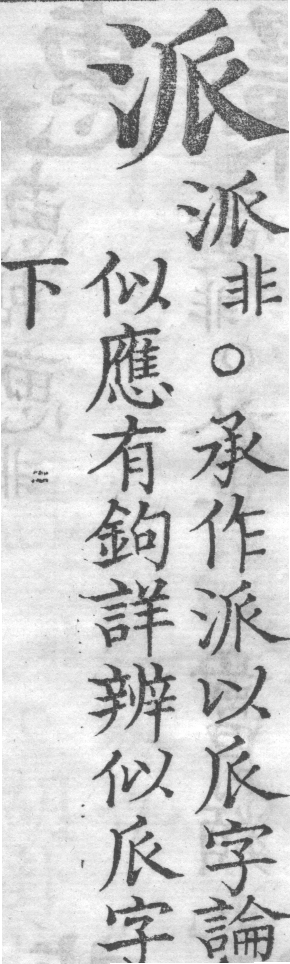 派
派非○承作派以𠂢字論
似應有鉤詳辨似𠂢字
下